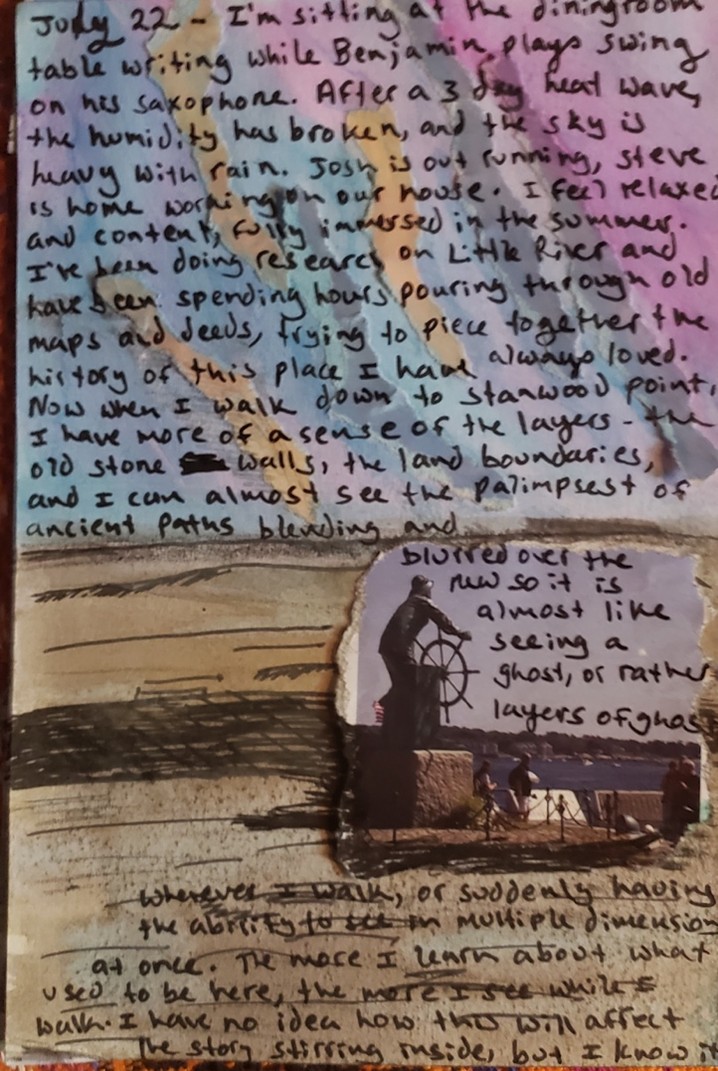 July 22 - I'm sitting at the diningroom
table writing while Benjamin plays swing
on his saxophone. After a 3 day heat wave,
the humidity has broken, and the sky is
heavy with rain. Josh is out running, steve
is home working on our house. I feel relaxed
and content, fully immersed in the summer.
I've been doing research on Little River and
have been spending hours pouring through old
maps and deeds, trying to piece together the
history of this place I have always loved.
Now when I walk down to Stanwood point,
I have more of a sense of the layers - the
old stone walls, the land boundaries,
and I can almost see the palimpsest of
ancient paths blending and
blurred over the
new so it is
almost like
seeing a
ghost, or rather
layers of ghos
wherever I walk, or suddenly having
the ability to see in multiple dimension
at once. The more I learn about what
used to be here, the more I see while I
walk. I have no idea how this will affect
the story stirring inside, but I know it